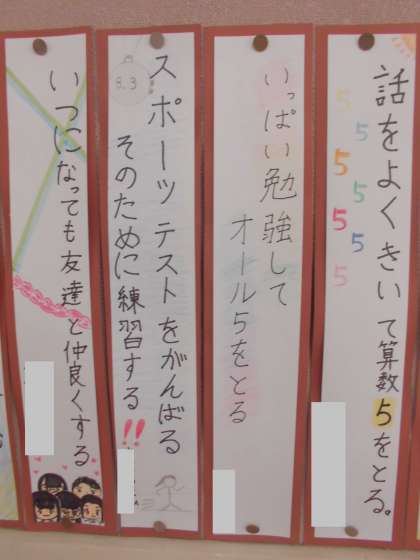 話をよくきいて算数5をとる。
5
5
5
5
5
5
5
いっぱい勉強して
オール5をとる
スポーツテストをがんばる
そのために練習する!!
8.3
いつになっても友達と仲良くする